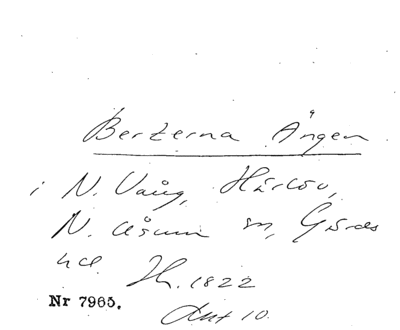 Berterna Ängen
i N. Vång, Härlöv,
N. Åsum sn, Gärds
hd. Jh. 1822
Nr 7965. Akt 10.